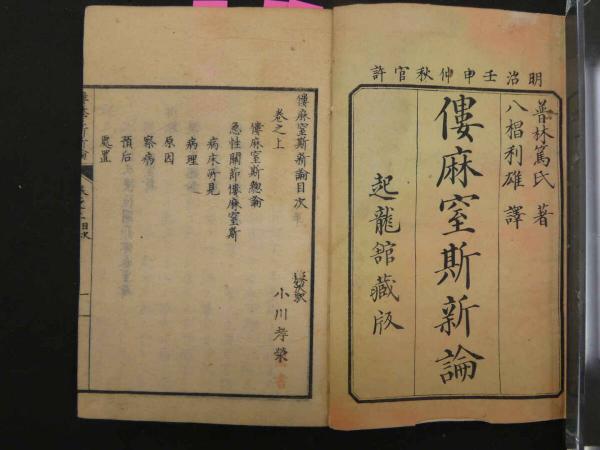 明治壬申仲秋官許
普林篤氏 著
八椙利雄 譯
僂麻窒斯新論
起龍舘藏版
僂麻窒斯新論目次
卷之上
僂麻窒斯總論
急性關節僂麻窒斯
病床所見
病理
原因
察病
預后
處置
小川孝榮